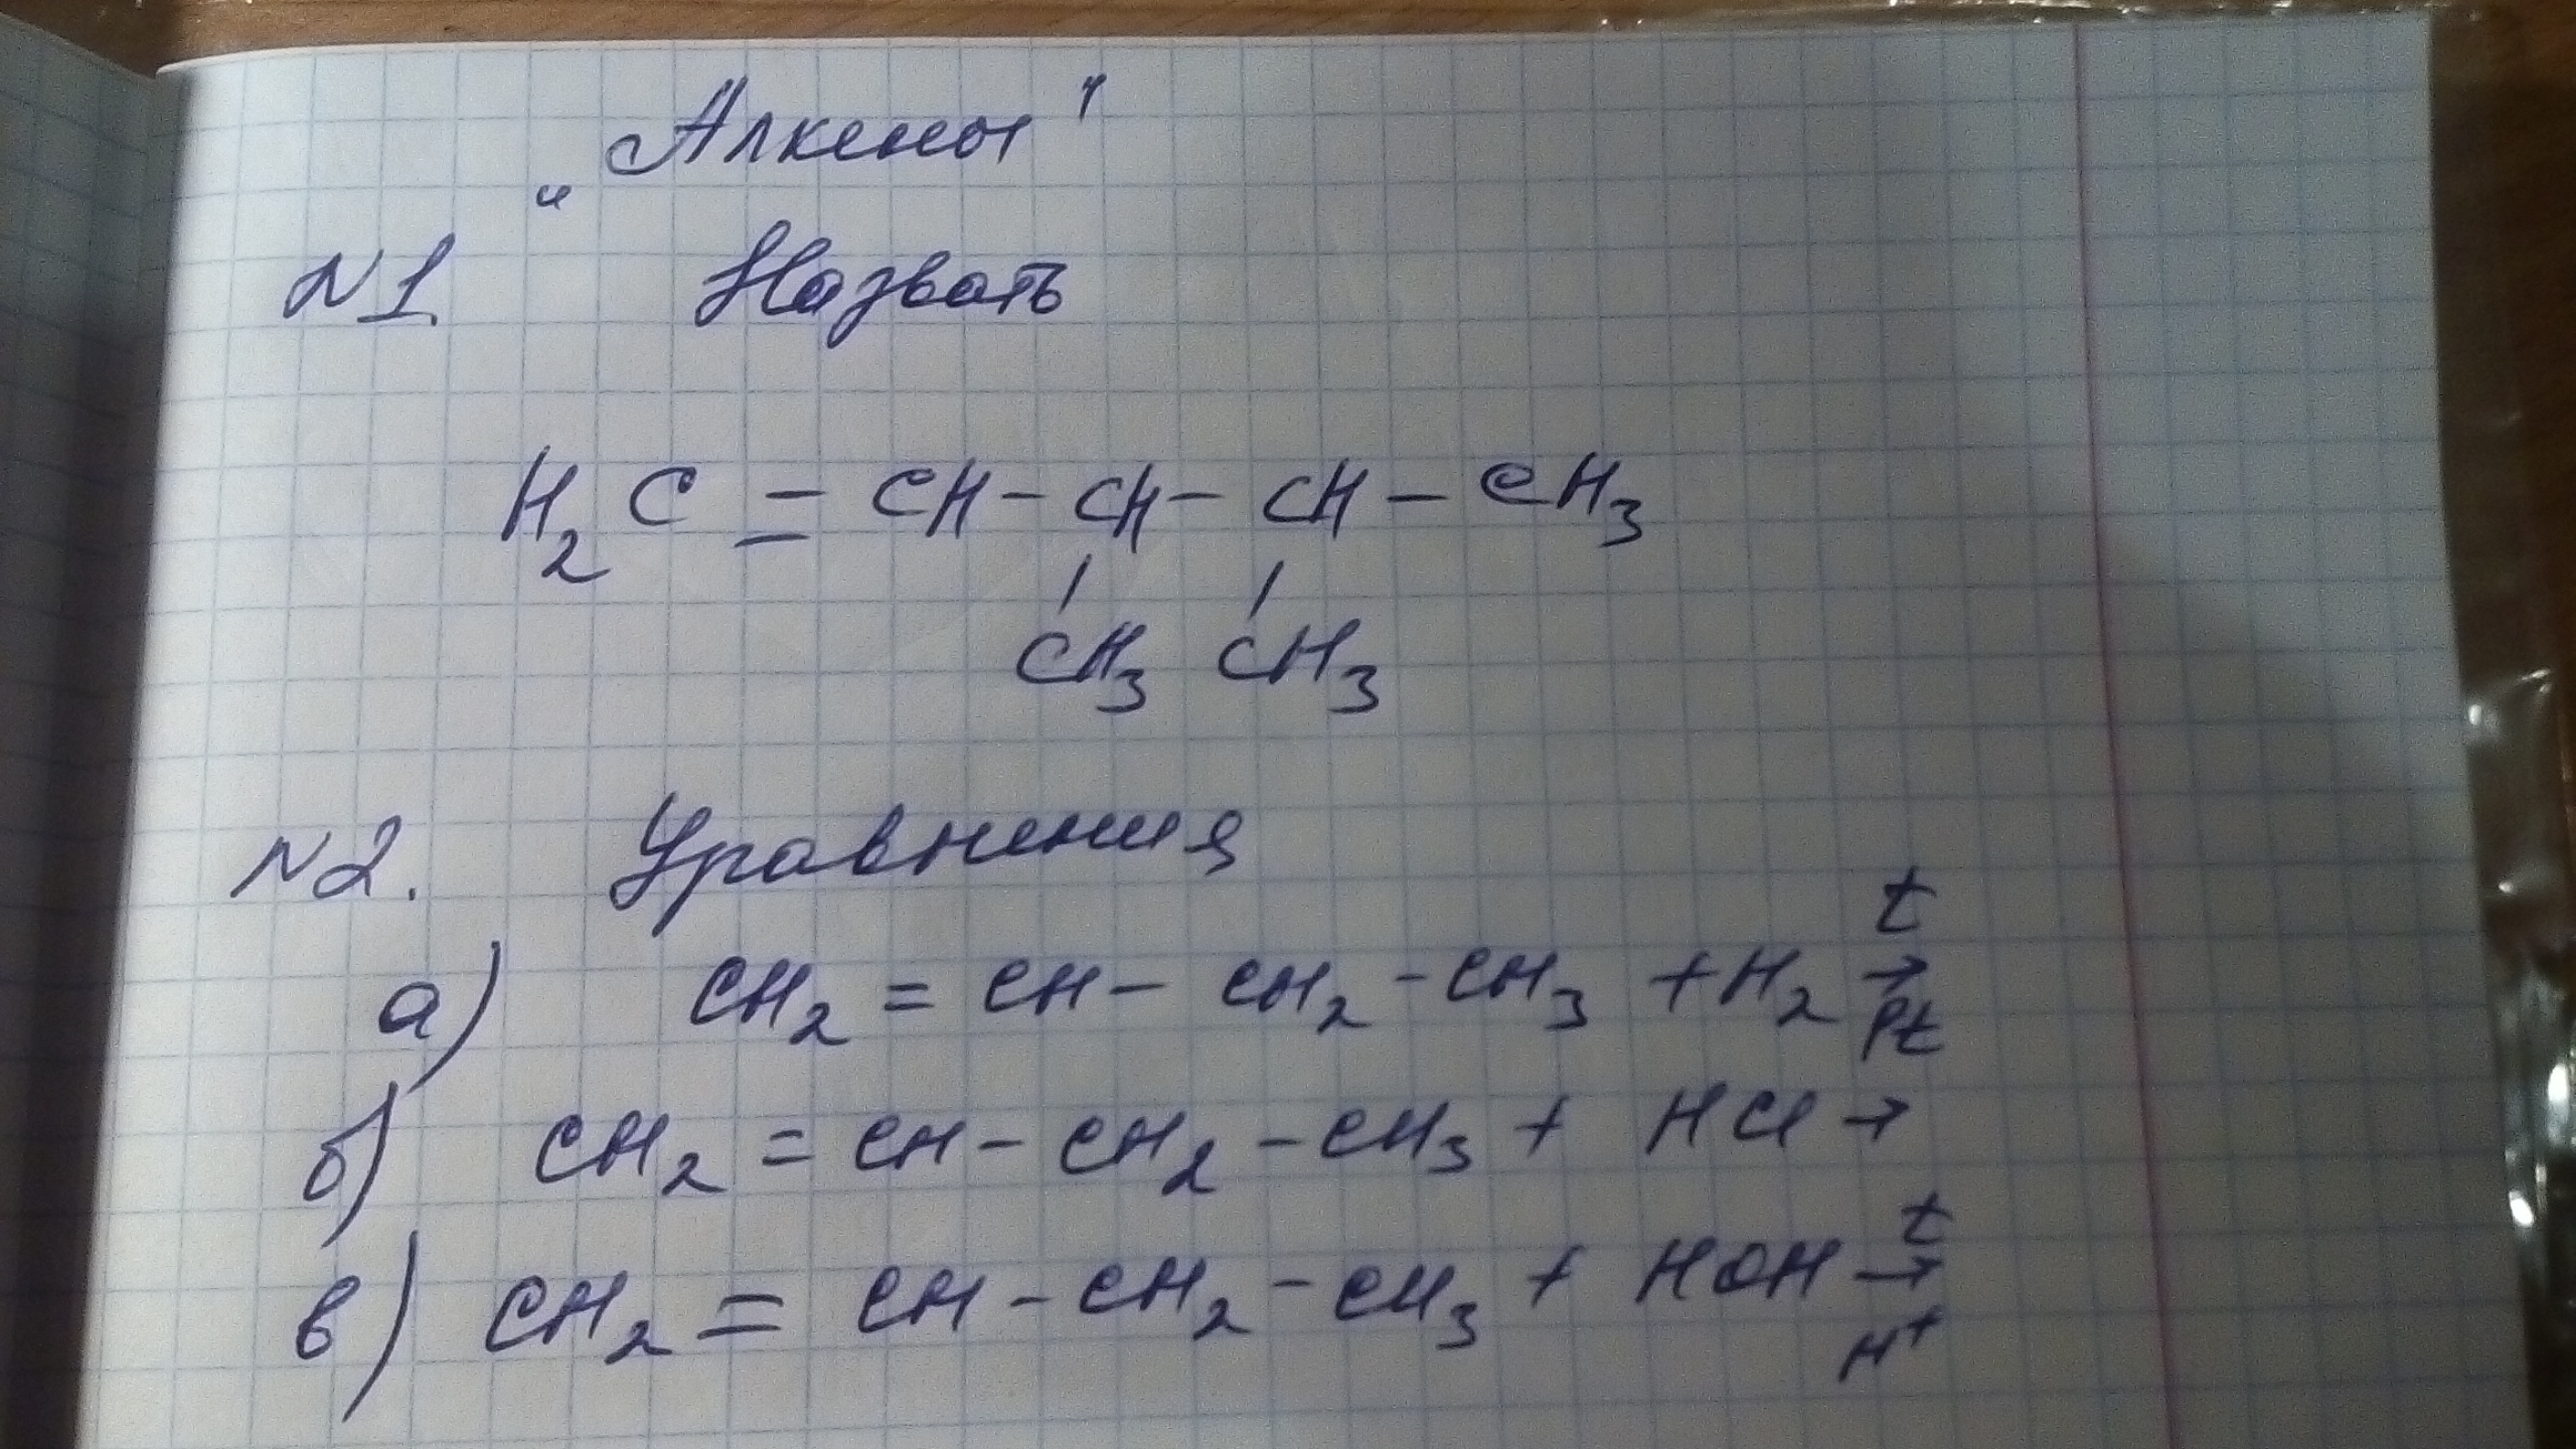 „Алкены"
N1. Назвать
H₂C = CH - CH - CH - CH₃
CH₃ CH₃
N2. Уравнения
t
а) CH₂ = CH - CH₂ - CH₃ + H₂ →
Pt
б) CH₂ = CH - CH₂ - CH₃ + HCl →
t
в) CH₂ = CH - CH₂ - CH₃ + HOH →
H⁺